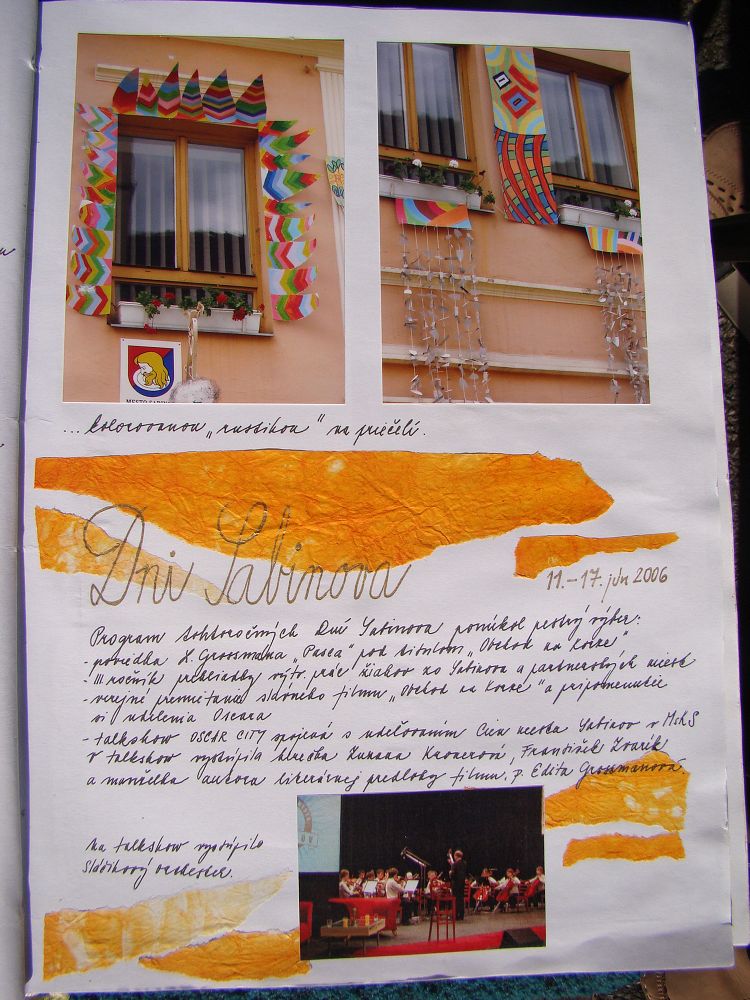 MESTO SABIN
... kolorovanou „rustikou" na priečelí.
Dni Sabinova
11.–17. jún 2006
Program tohtoročných Dní Sabinova ponúkol pestrý výber:
- poviedka L. Grossmana „Pasca" pod titulom „Obchod na korze"
- III ročník prehliadky výtv. prác žiakov zo Sabinova a partnerských miest
- verejné premietanie slávneho filmu „Obchod na korze" a pripomenutie
si udelenia Oscara
- talkshow OSCAR CITY spojená s udeľovaním Cien mesta Sabinov v MsKS
V talkshow vystúpila herečka Zuzana Kronerová, František Zvarík
a manželka autora literárnej predlohy filmu, p. Edita Grosmanová.
Na talkshow vystúpilo
Sládikový orchester.